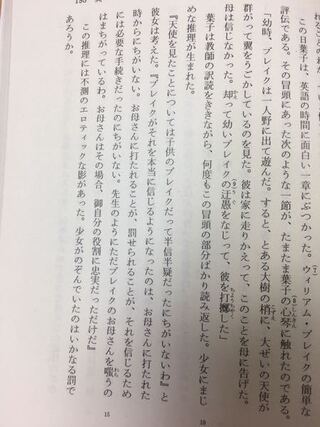 この日葉子は、英語の時間に面白い一章にぶつかった。ウィリアム・ブレイクの簡単な
評伝である。その冒頭にあった次のような一節が、たまたま葉子の心琴に触れたのである。
「幼時、ブレイクは一人野に出て遊んだ。すると、とある大樹の梢に、大ぜいの天使が
群がって翼をうごかしているのを見た。彼は家に走りかえって、このことを母に告げた。
母は信じなかった。却って幼いブレイクの汪愚をなじって、彼を打擲した」
葉子は教師の訳読をききながら、何度もこの冒頭の部分ばかり読み返した。少女にまじ
めな推理が生まれた。
『天使を見たことについては子供のブレイクだって半信半疑だったにちがいないわ』と
彼女は考えた。『ブレイクがそれを本当に信じるようになったのは、お母さんに打たれた
時からにちがいない。お母さんに打たれることが、罰せられることが、それを信じるため
には必要な手続きだったのにちがいない。先生のようにただブレイクのお母さんを嗤うの
はまちがっているわ。お母さんはその場合、御自分の役割に忠実だっただけだ』
この推理には不測のエロティックな影があった。少女がのぞんでいたのはいかなる罰で
あろうか。
10
15